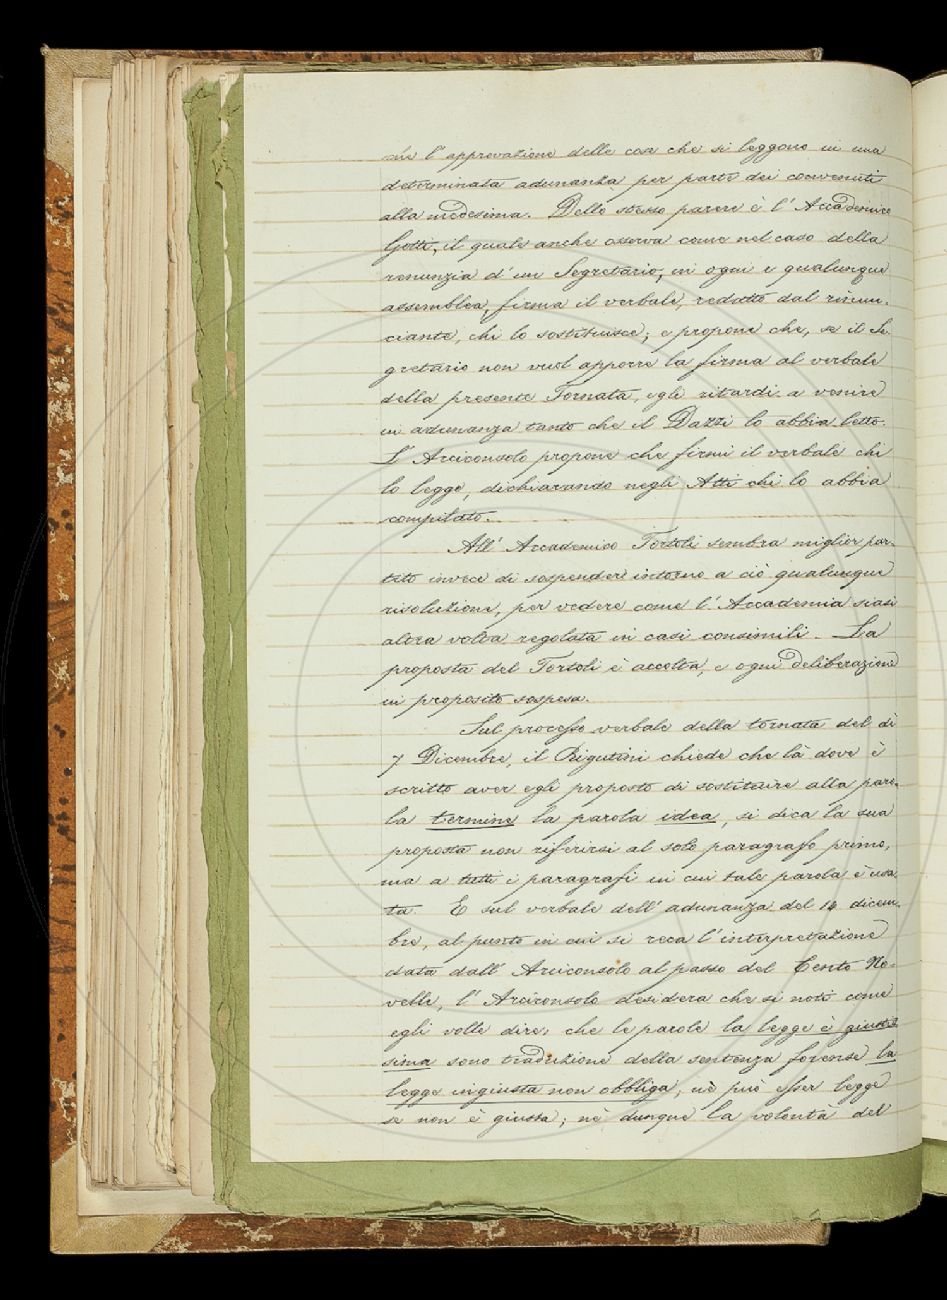 che l'approvazione delle cose che si leggono in una
determinata adunanza per parte dei convenuti
alla medesima. Dello stesso parere è l'Accademico
Gotti, il quale anche osserva come nel caso della
renunzia d'un Segretario, in ogni e qualunque
assemblea, firma il verbale, redatto dal rinun-
ciante, chi lo sostituisce; e propone che, se il Se-
gretario non vuol apporre la firma al verbale
della presente Tornata, egli ritardi a venire
in adunanza tanto che il Dazzi lo abbia letto.
L'Arciconsolo propone che firmi il verbale chi
lo legge, dichiarando negli Atti chi lo abbia
compilato.
All'Accademico Tortoli sembra miglior par-
tito invece di sospendere intorno a ciò qualunque
risoluzione, per vedere come l'Accademia siasi
altra volta regolata in casi consimili. La
proposta del Tortoli è accolta, e ogni deliberazione
in proposito sospesa.
Sul processo verbale della tornata del dì
7 Dicembre, il Rigutini chiede che là dove è
scritto aver egli proposto di sostituire alla paro-
la termine la parola idea, si dica la sua
proposta non riferirsi al solo paragrafo primo,
ma a tutti i paragrafi in cui tale parola è usa-
ta. E sul verbale dell'adunanza del 14 dicem-
bre, al punto in cui si reca l'interpretazione
data dall'Arciconsolo al passo del Cento No-
velle, l'Arciconsolo desidera che si noti come
egli volle dire, che le parole la legge è giustis
sima sono traduzione della sentenza forense la
legge ingiusta non obbliga, nè può esser legge
se non è giusta; nè dunque la volontà del